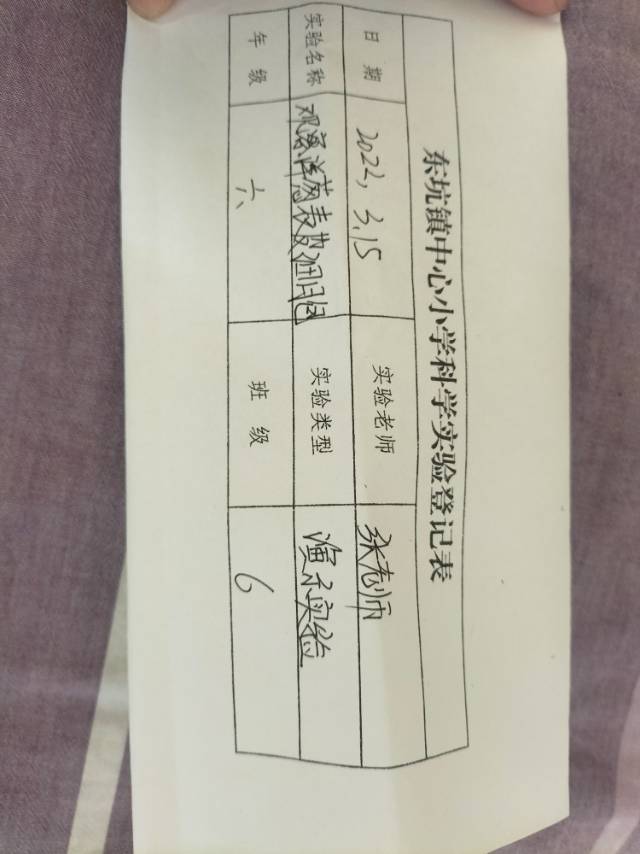 东坑镇中心小学科学实验登记表
日期 2022,3.15 实验老师 张老师
实验名称 观察洋葱表皮细胞 实验类型 演示实验
年级 六、 班级 6